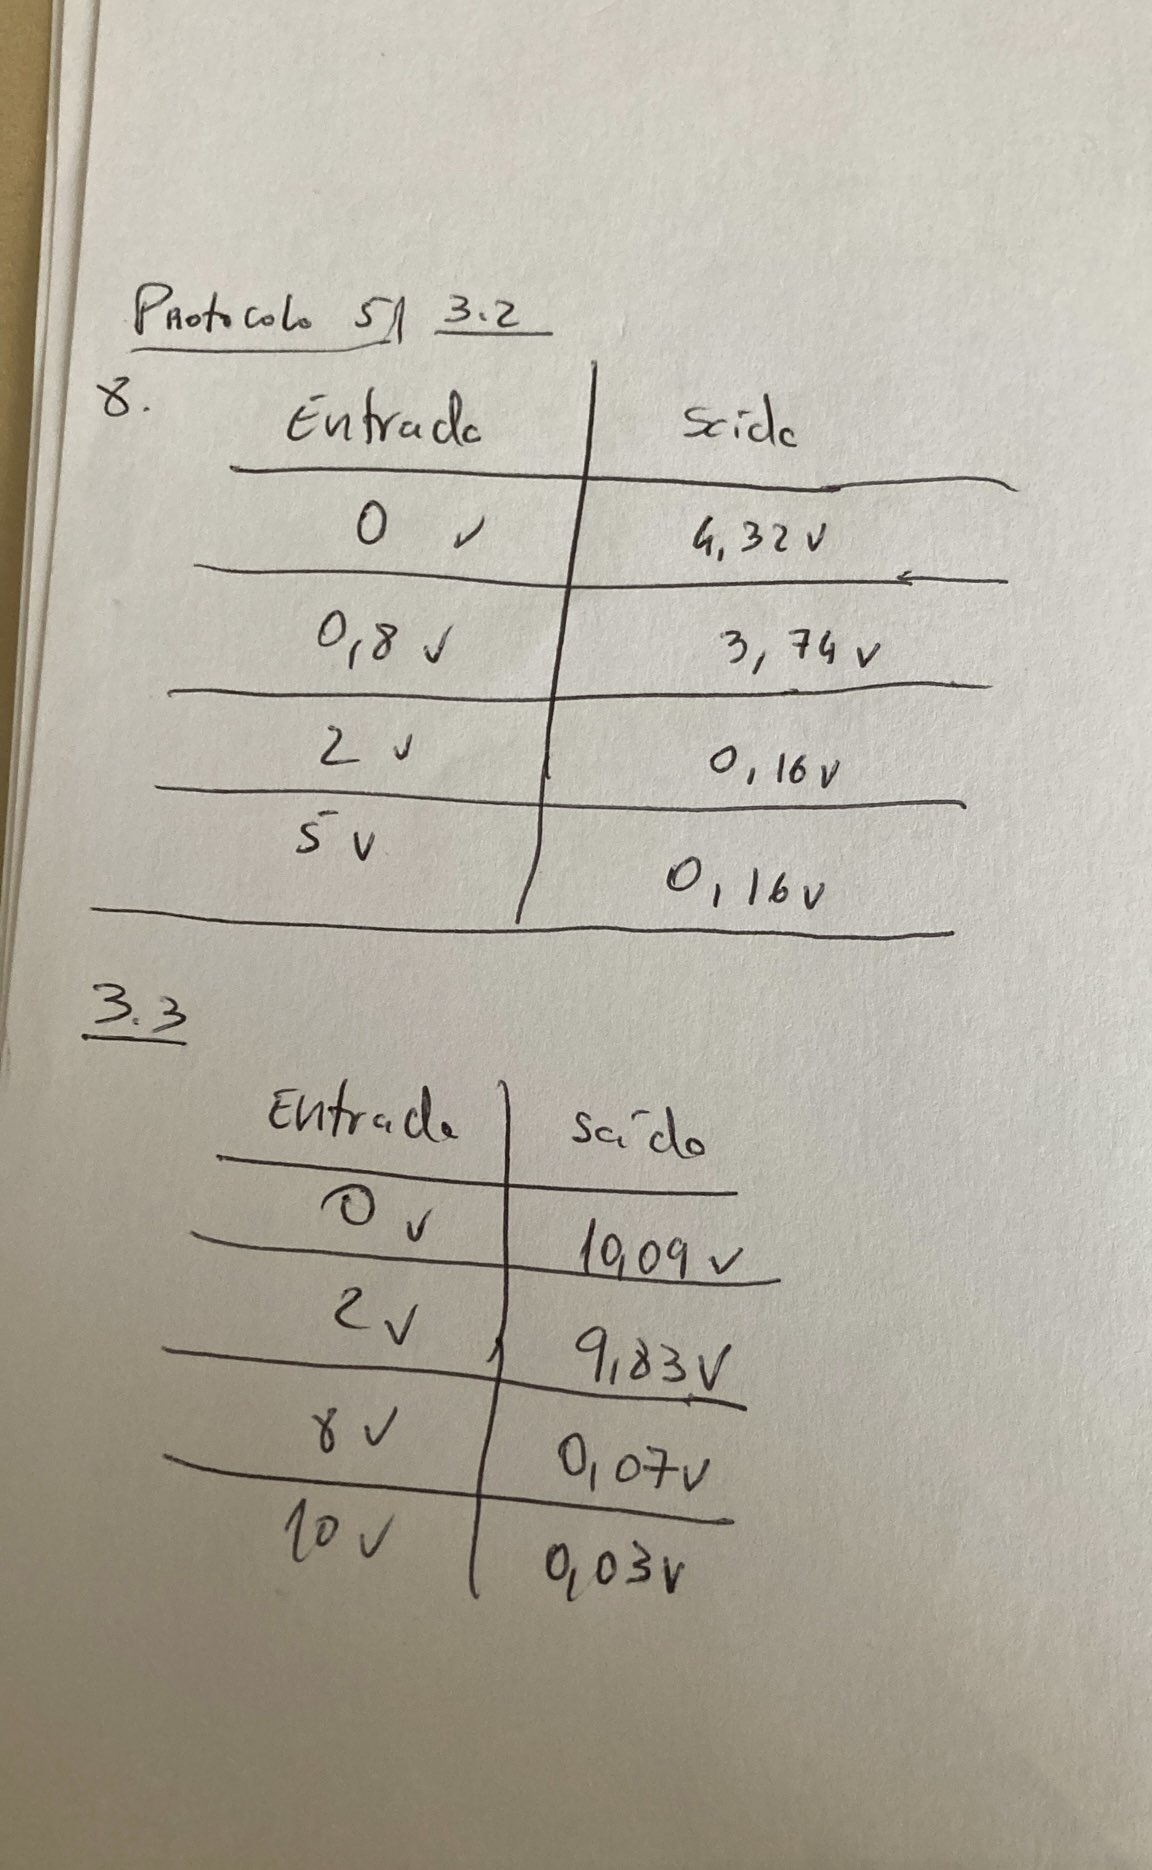 Protocolo 51 3.2
8.
Entrada Saida
0 v 4,32 v
0,8 v 3,74 v
2 v 0,16 v
5 v 0,16 v
3.3
Entrada Saída
0 v 10,09 v
2 v 9,83 v
8 v 0,07 v
10 v 0,03 v